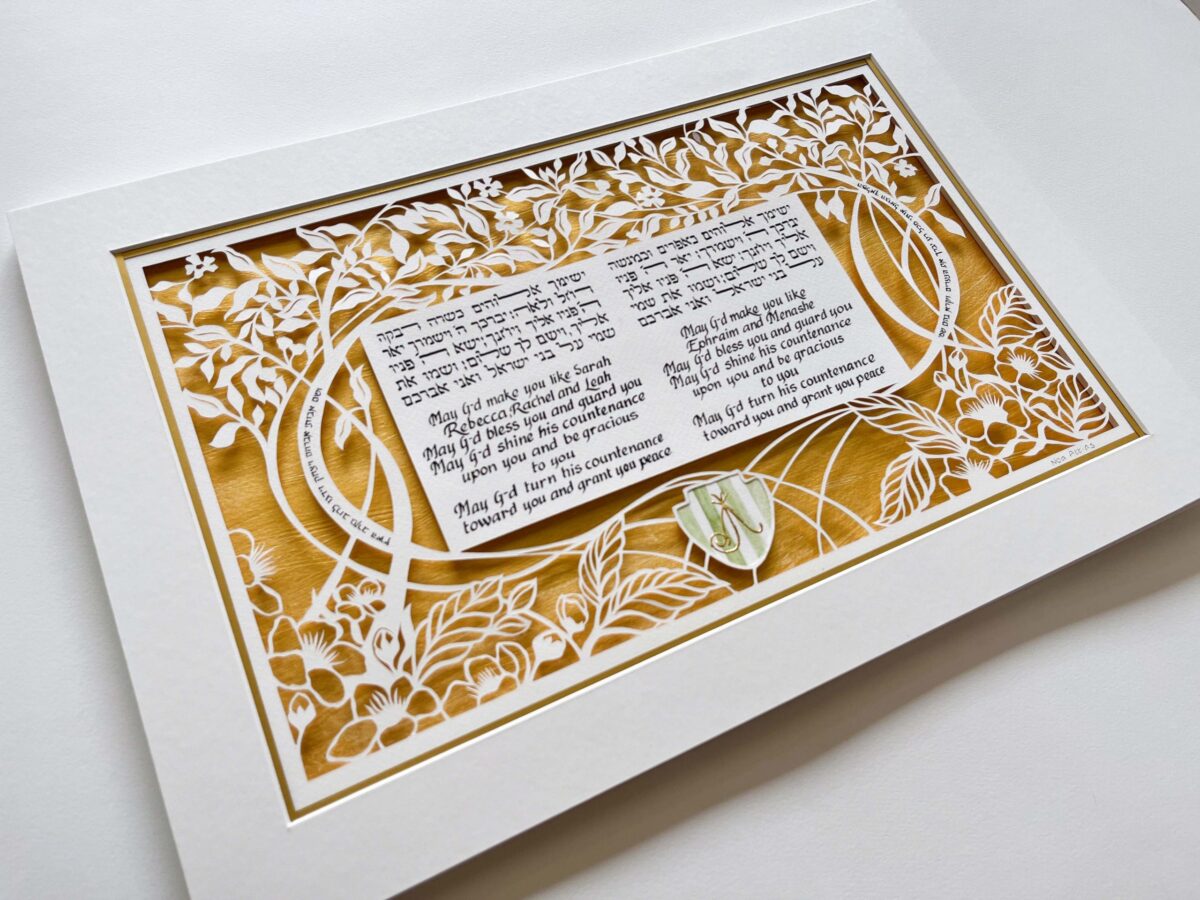 ישימך אלוהים כאפרים וכמנשה
יברכך ה' וישמורך; יאר ה' פניו
אליך ויחנך; ישא ה' פניו אליך
וישם לך שלום; ושמו את שמי
על בני ישראל ואני אברכם
May G-d make you like
Ephraim and Menashe
May G-d bless you and guard you
May G-d shine his countenance
upon you and be gracious
to you
May G-d turn his countenance
toward you and grant you peace
ישימך אלוהים כשרה רבקה
רחל ולאה; יברכך ה' וישמורך יאר
ה' פניו אליך ויחנך; ישא ה' פניו
אליך, וישם לך שלום; ושמו את
שמי על בני ישראל ואני אברכם
May G-d make you like Sarah
Rebecca, Rachel and Leah
May G-d bless you and guard you
May G-d shine his countenance
upon you and be gracious
to you
May G-d turn his countenance
toward you and grant you peace
Noa